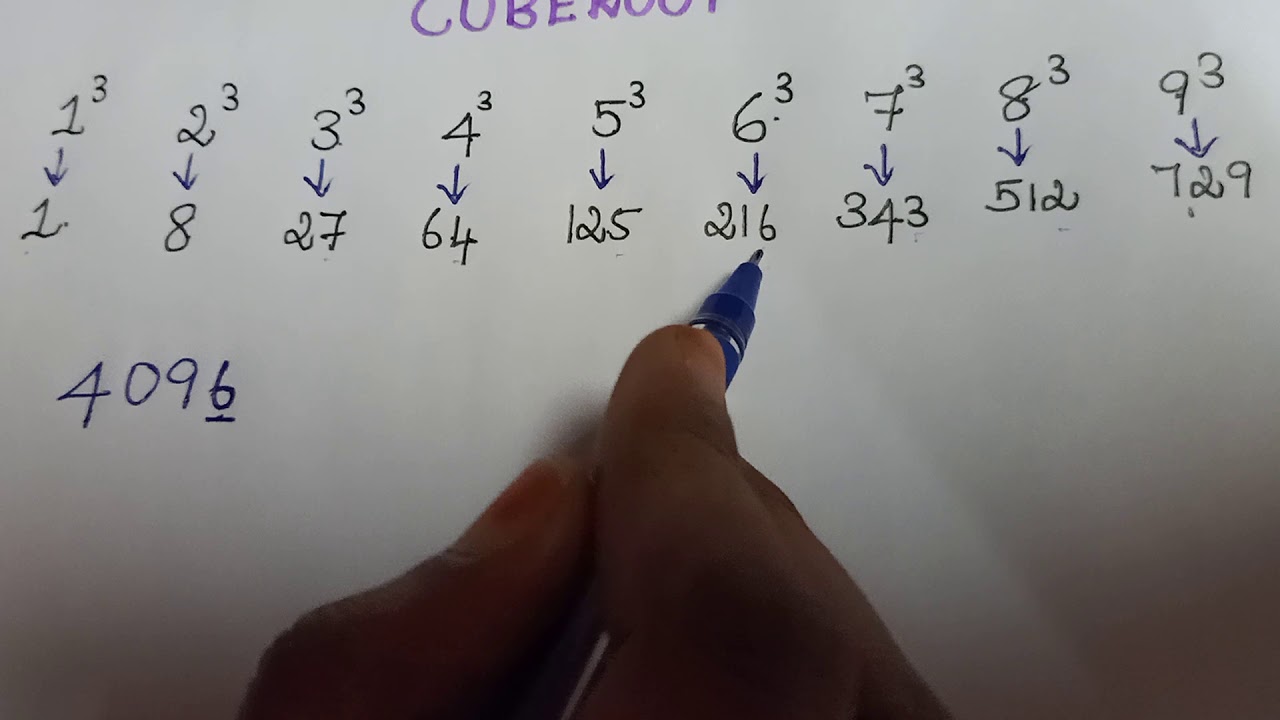 CUBEROOT
1³ 2³ 3³ 4³ 5³ 6³ 7³ 8³ 9³
↓ ↓ ↓ ↓ ↓ ↓ ↓ ↓ ↓
1 8 27 64 125 216 343 512 729
4096